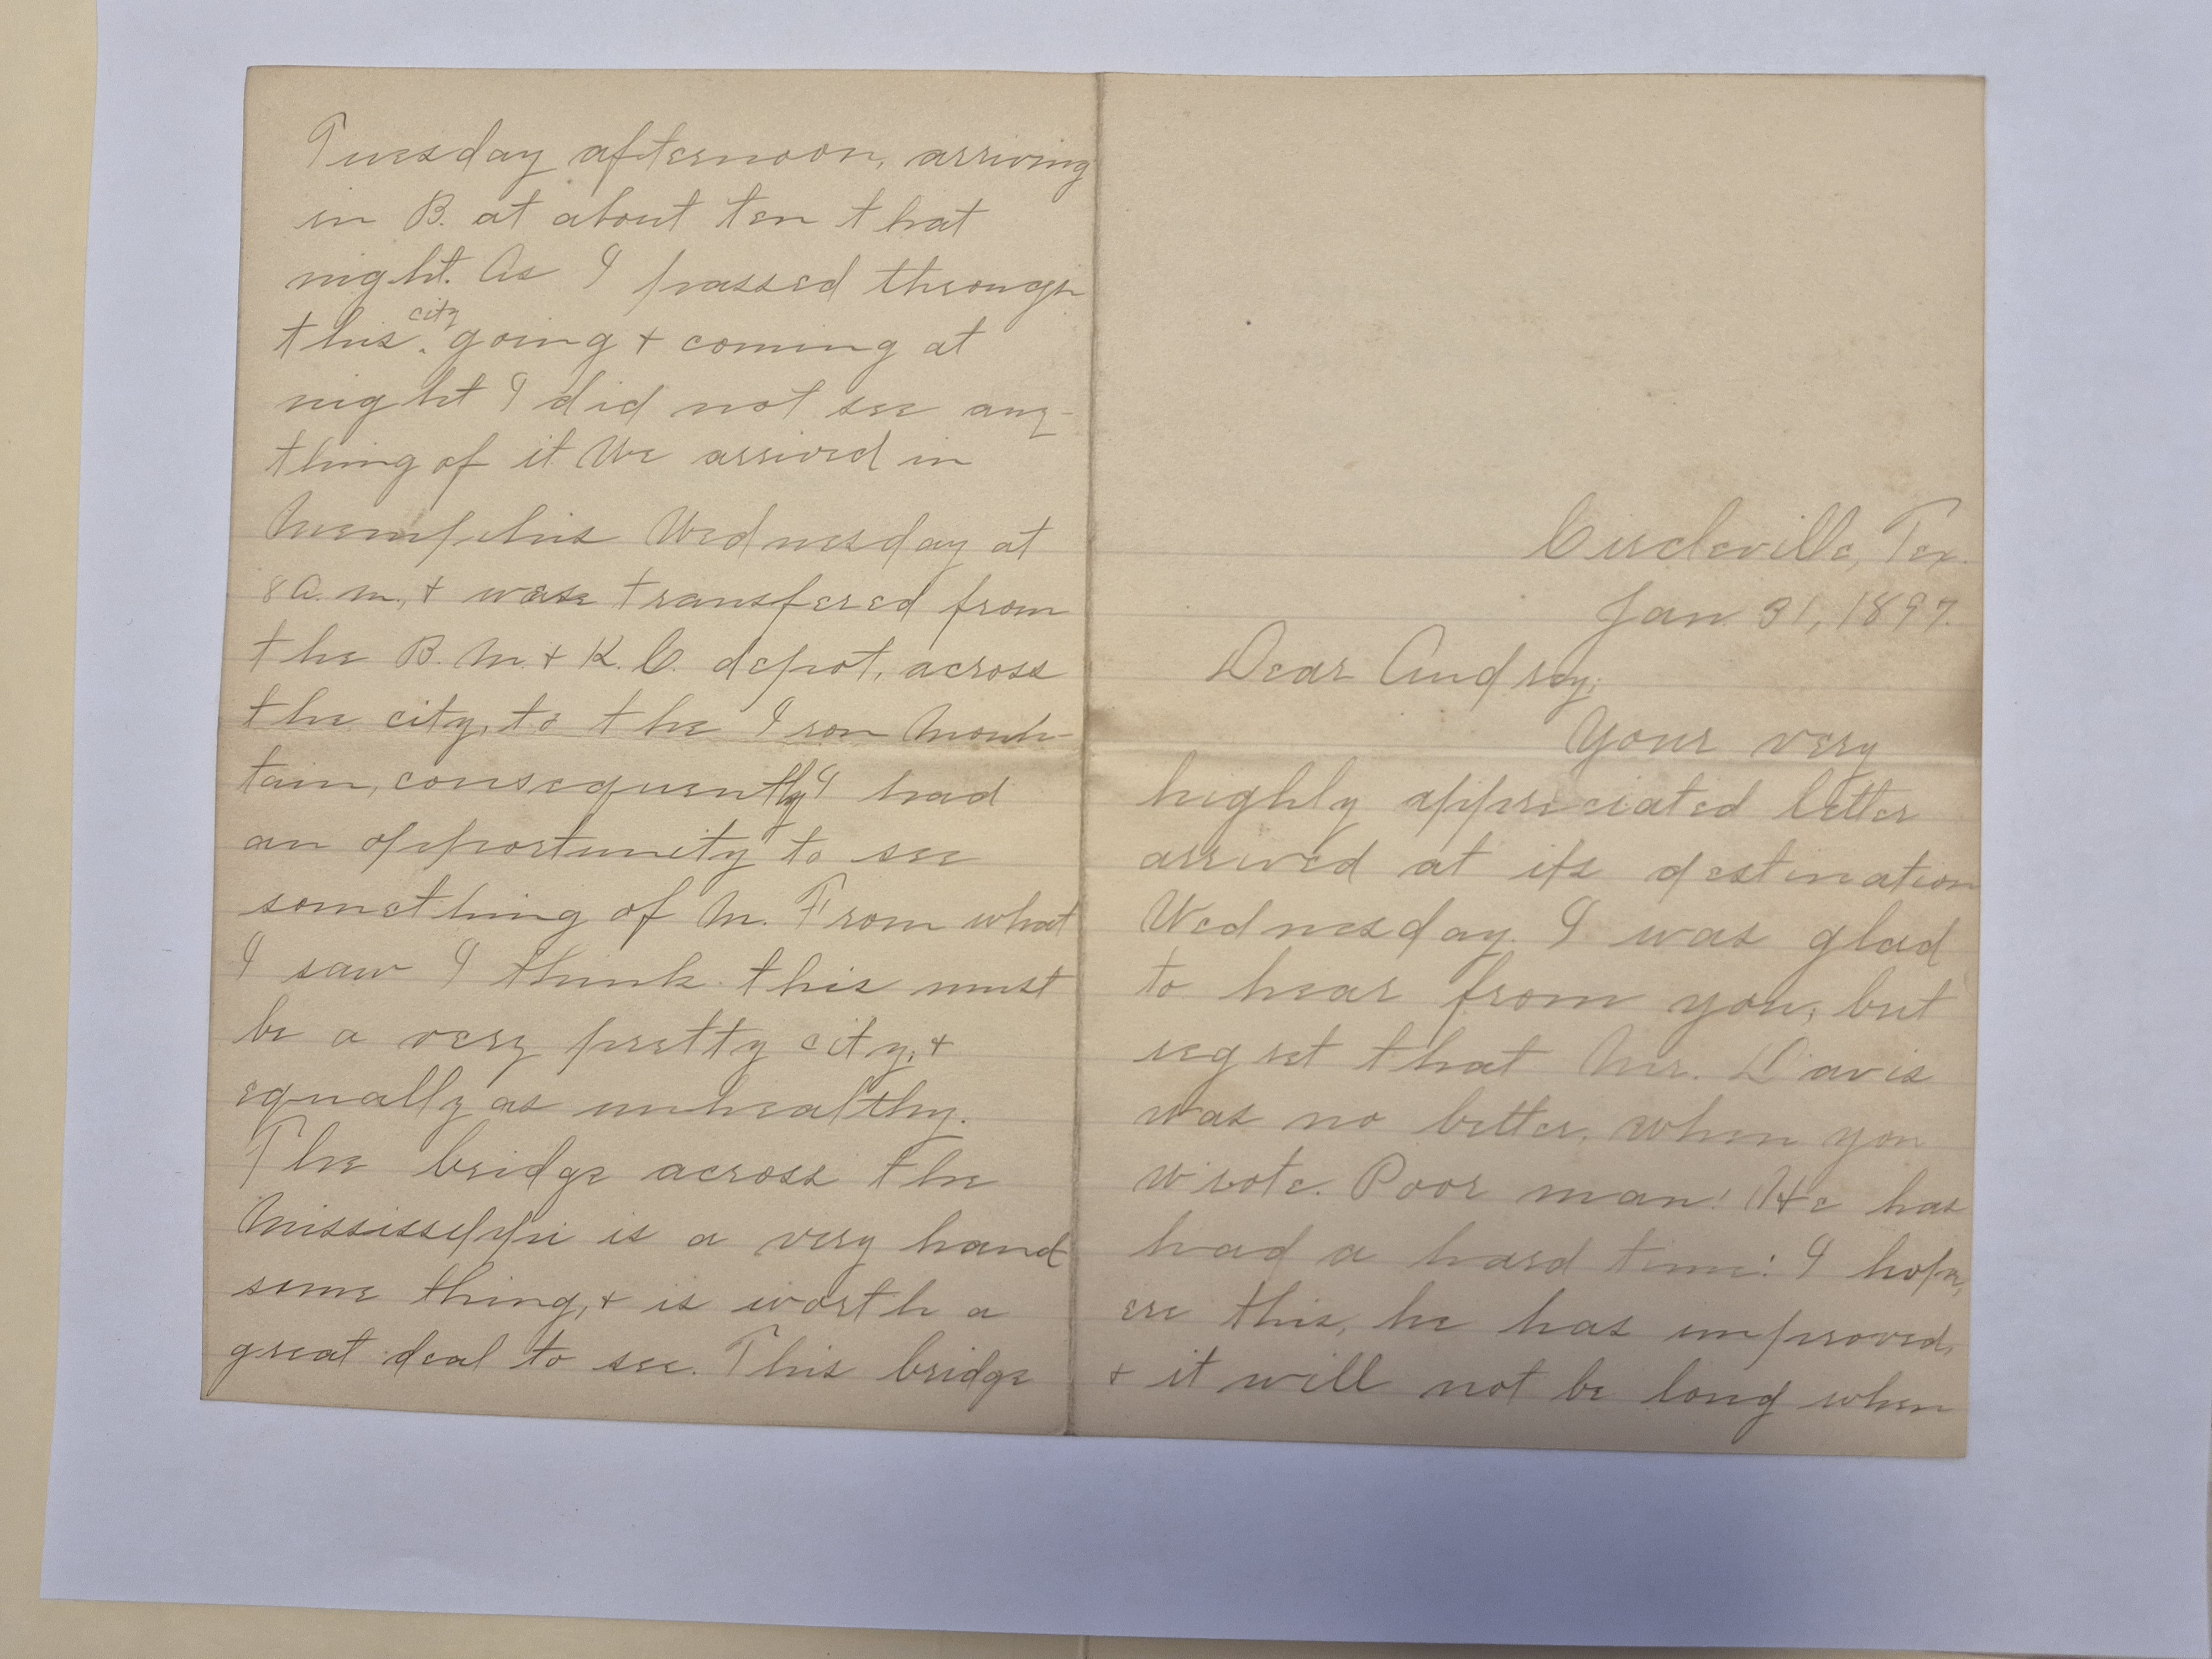 Circleville, Tex.
Jan. 31, 1897.
Dear Audrey;
Your very
highly appreciated letter
arrived at its destination
Wednesday. I was glad
to hear from you, but
regret that Mr. Davis
was no better, when you
wrote. Poor man! He has
had a hard time! I hope,
ere this, he has improved,
+ it will not be long when
Tuesday afternoon, arriving
in B. at about ten that
night. As I passed through
this city going + coming at
night I did not see any-
thing of it. We arrived in
Memphis Wednesday at
8 a.m., + was transfered from
the B. M. + K. C. depot, across
the city, to the Iron Moun-
tain, consequently I had
an opportunity to see
something of M. From what
I saw I think this must
be a very pretty city, +
equally as unhealthy.
The bridge across the
Mississippi is a very hand
some thing, + is worth a
great deal to see. This bridge